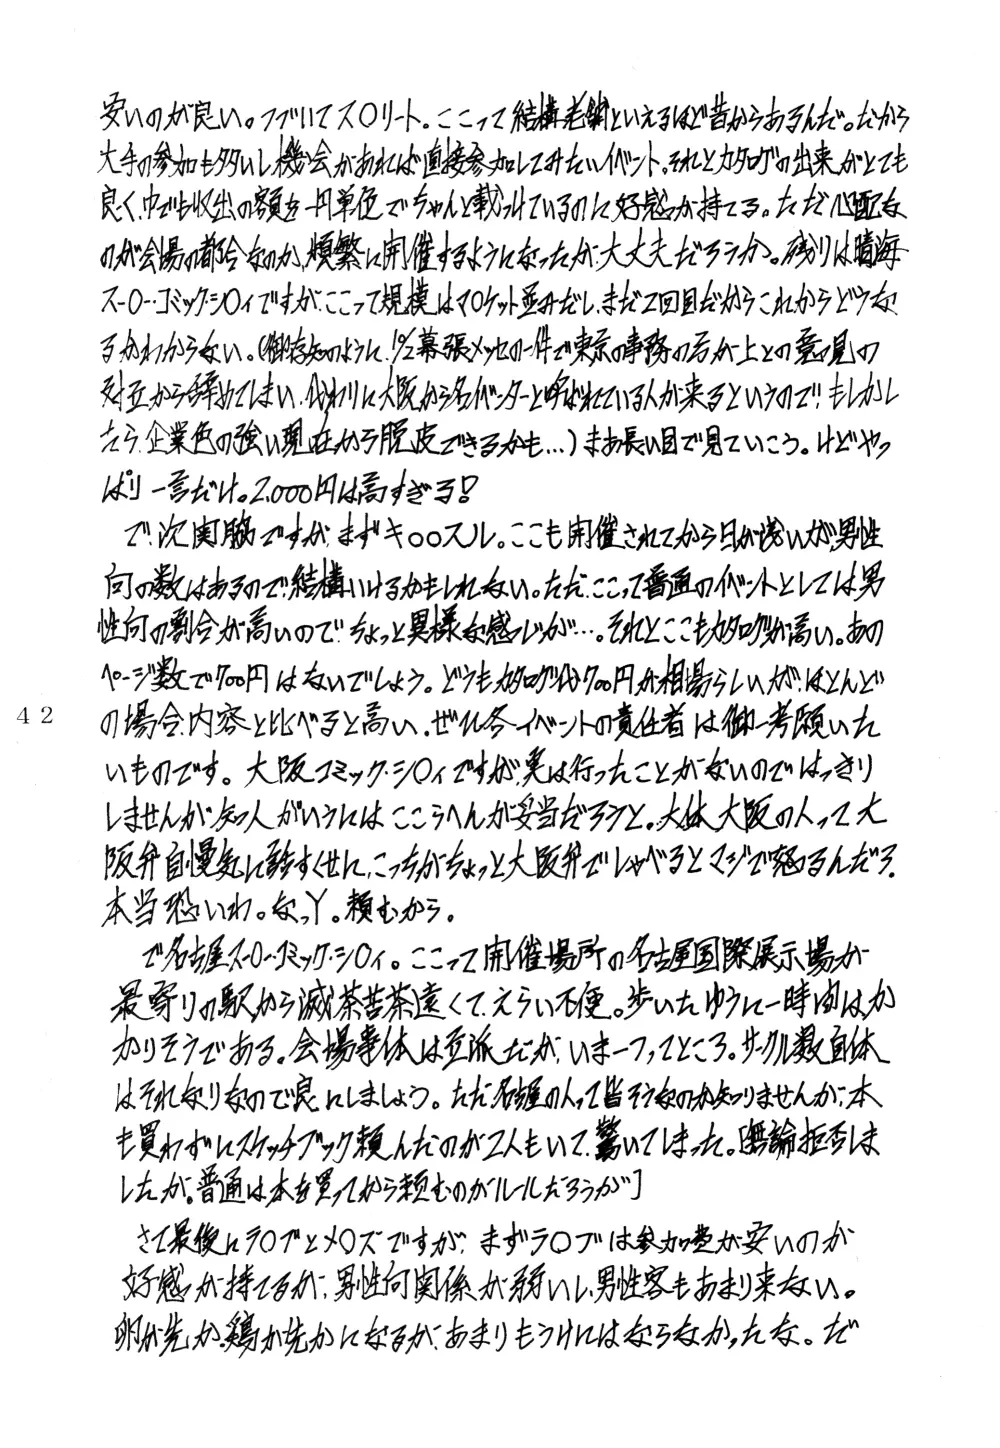 安いのが良い。つづいてス〇リート。ここって結構老舗といえるほど昔からあるんだ。だから
大手の参加も多いし機会があれば直接参加してみたいイベント。それとカタログの出来がとても
良く、中でも収出の額を一円単位でちゃんと載っけているのに好感が持てる。ただ心配な
のが会場の都合なのか、頻繁に開催するようになったが、大丈夫だろうか。残りは晴海
スー〇ー・コミック・シ〇ィですが、ここって規模はマ〇ケット並みだし、まだ2回目だからこれからどうな
るかわからない。(御存知のように、幕張メッセの一件で東京の事務の方が上との意見の
対立から辞めてしまい、代わりに大阪から名イベンターと呼ばれている人が来るというので、もしかし
たら、企業色の強い現在から脱皮できるかも…)まあ長い目で見ていこう。けどやっ
ぱり一言だけ。2,000円は高すぎる!
で、次関脇ですが、まずキ〇〇スル。ここも開催されてから日が浅いが、男性
向の数はあるので、結構いけるかもしれない。ただ、ここって普通のイベントとしては男
性向の割合が高いので、ちょっと異様な感じが…。それとここもカタログが高い。あの
ページ数で700円はないでしょう。どうもカタログ代700円が相場らしいが、ほとんど
の場合、内容と比べると高い。ぜひ各イベントの責任者は御一考願いた
いものです。大阪コミック・シ〇ィですが、実は行ったことがないのではっきり
しませんが、知人がいうにはここらへんが妥当だろうと。大体大阪の人って大
阪弁自慢気に話すくせに、こっちがちょっと大阪弁でしゃべるとマジで怒るんだろ。
本当恐いわ。なっY。頼むから。
で名古屋スー〇ー・コミック・シ〇ィ。ここって開催場所の名古屋国際展示場が
最寄りの駅から滅茶苦茶遠くて、えらい不便。歩いたらゆうに一時間はか
かりそうである。会場事体は立派だが、いま一つってところ。サークル数自体
はそれなりなので良しにしましょう。ただ名古屋の人って皆そうなのか知りませんが、本
も買わずにスケッチブック頼んだのが2人もいて、驚いてしまった。[無論拒否しま
したが。普通は本を買ってから頼むのがルールだろうが]
さて最後にラ〇ブとメ〇ズですが、まずラ〇ブは参加費が安いのが
好感が持てるが、男性向関係が弱いし、男性客もあまり来ない。
卵が先か、鶏が先かになるが、あまりもうけにはならなかったな。だ
42